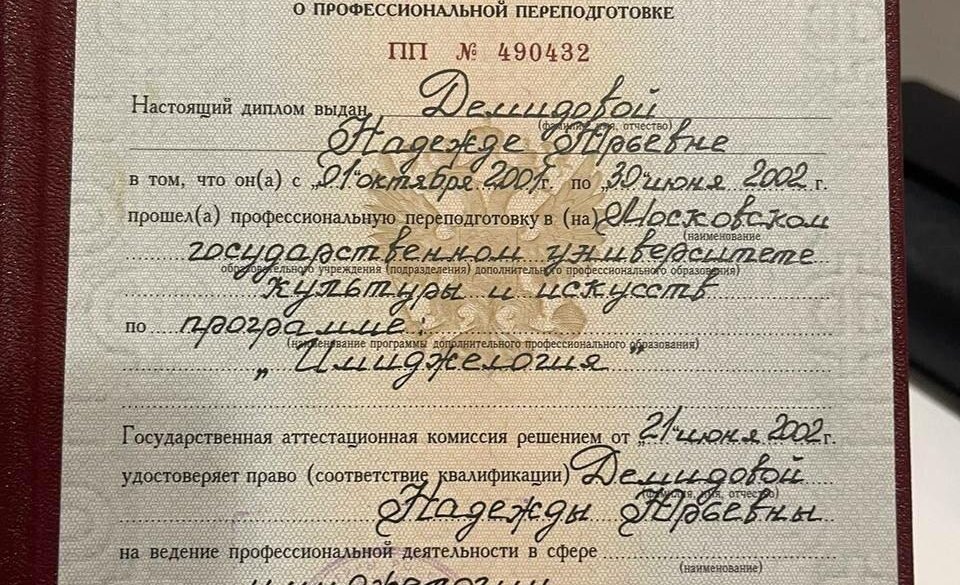 О ПРОФЕССИОНАЛЬНОЙ ПЕРЕПОДГОТОВКЕ
ПП № 490432
Настоящий диплом выдан Демидовой
(фамилия, имя, отчество)
Надежде Юрьевне
в том, что он(а) с „01“ октября 2001г. по „30“ июня 2002 г.
прошел(а) профессиональную переподготовку в (на) Московском
(наименование
государственном университете
образовательного учреждения (подразделения) дополнительного профессионального образования)
культуры и искусств
по программе:
(наименование программы дополнительного профессионального образования)
„Имиджелогия“
Государственная аттестационная комиссия решением от „21“ июня 2002г.
удостоверяет право (соответствие квалификации) Демидовой
(фамилия, имя, отчество)
Надежды Юрьевны
на ведение профессиональной деятельности в сфере
(наименование)
имиджелогии